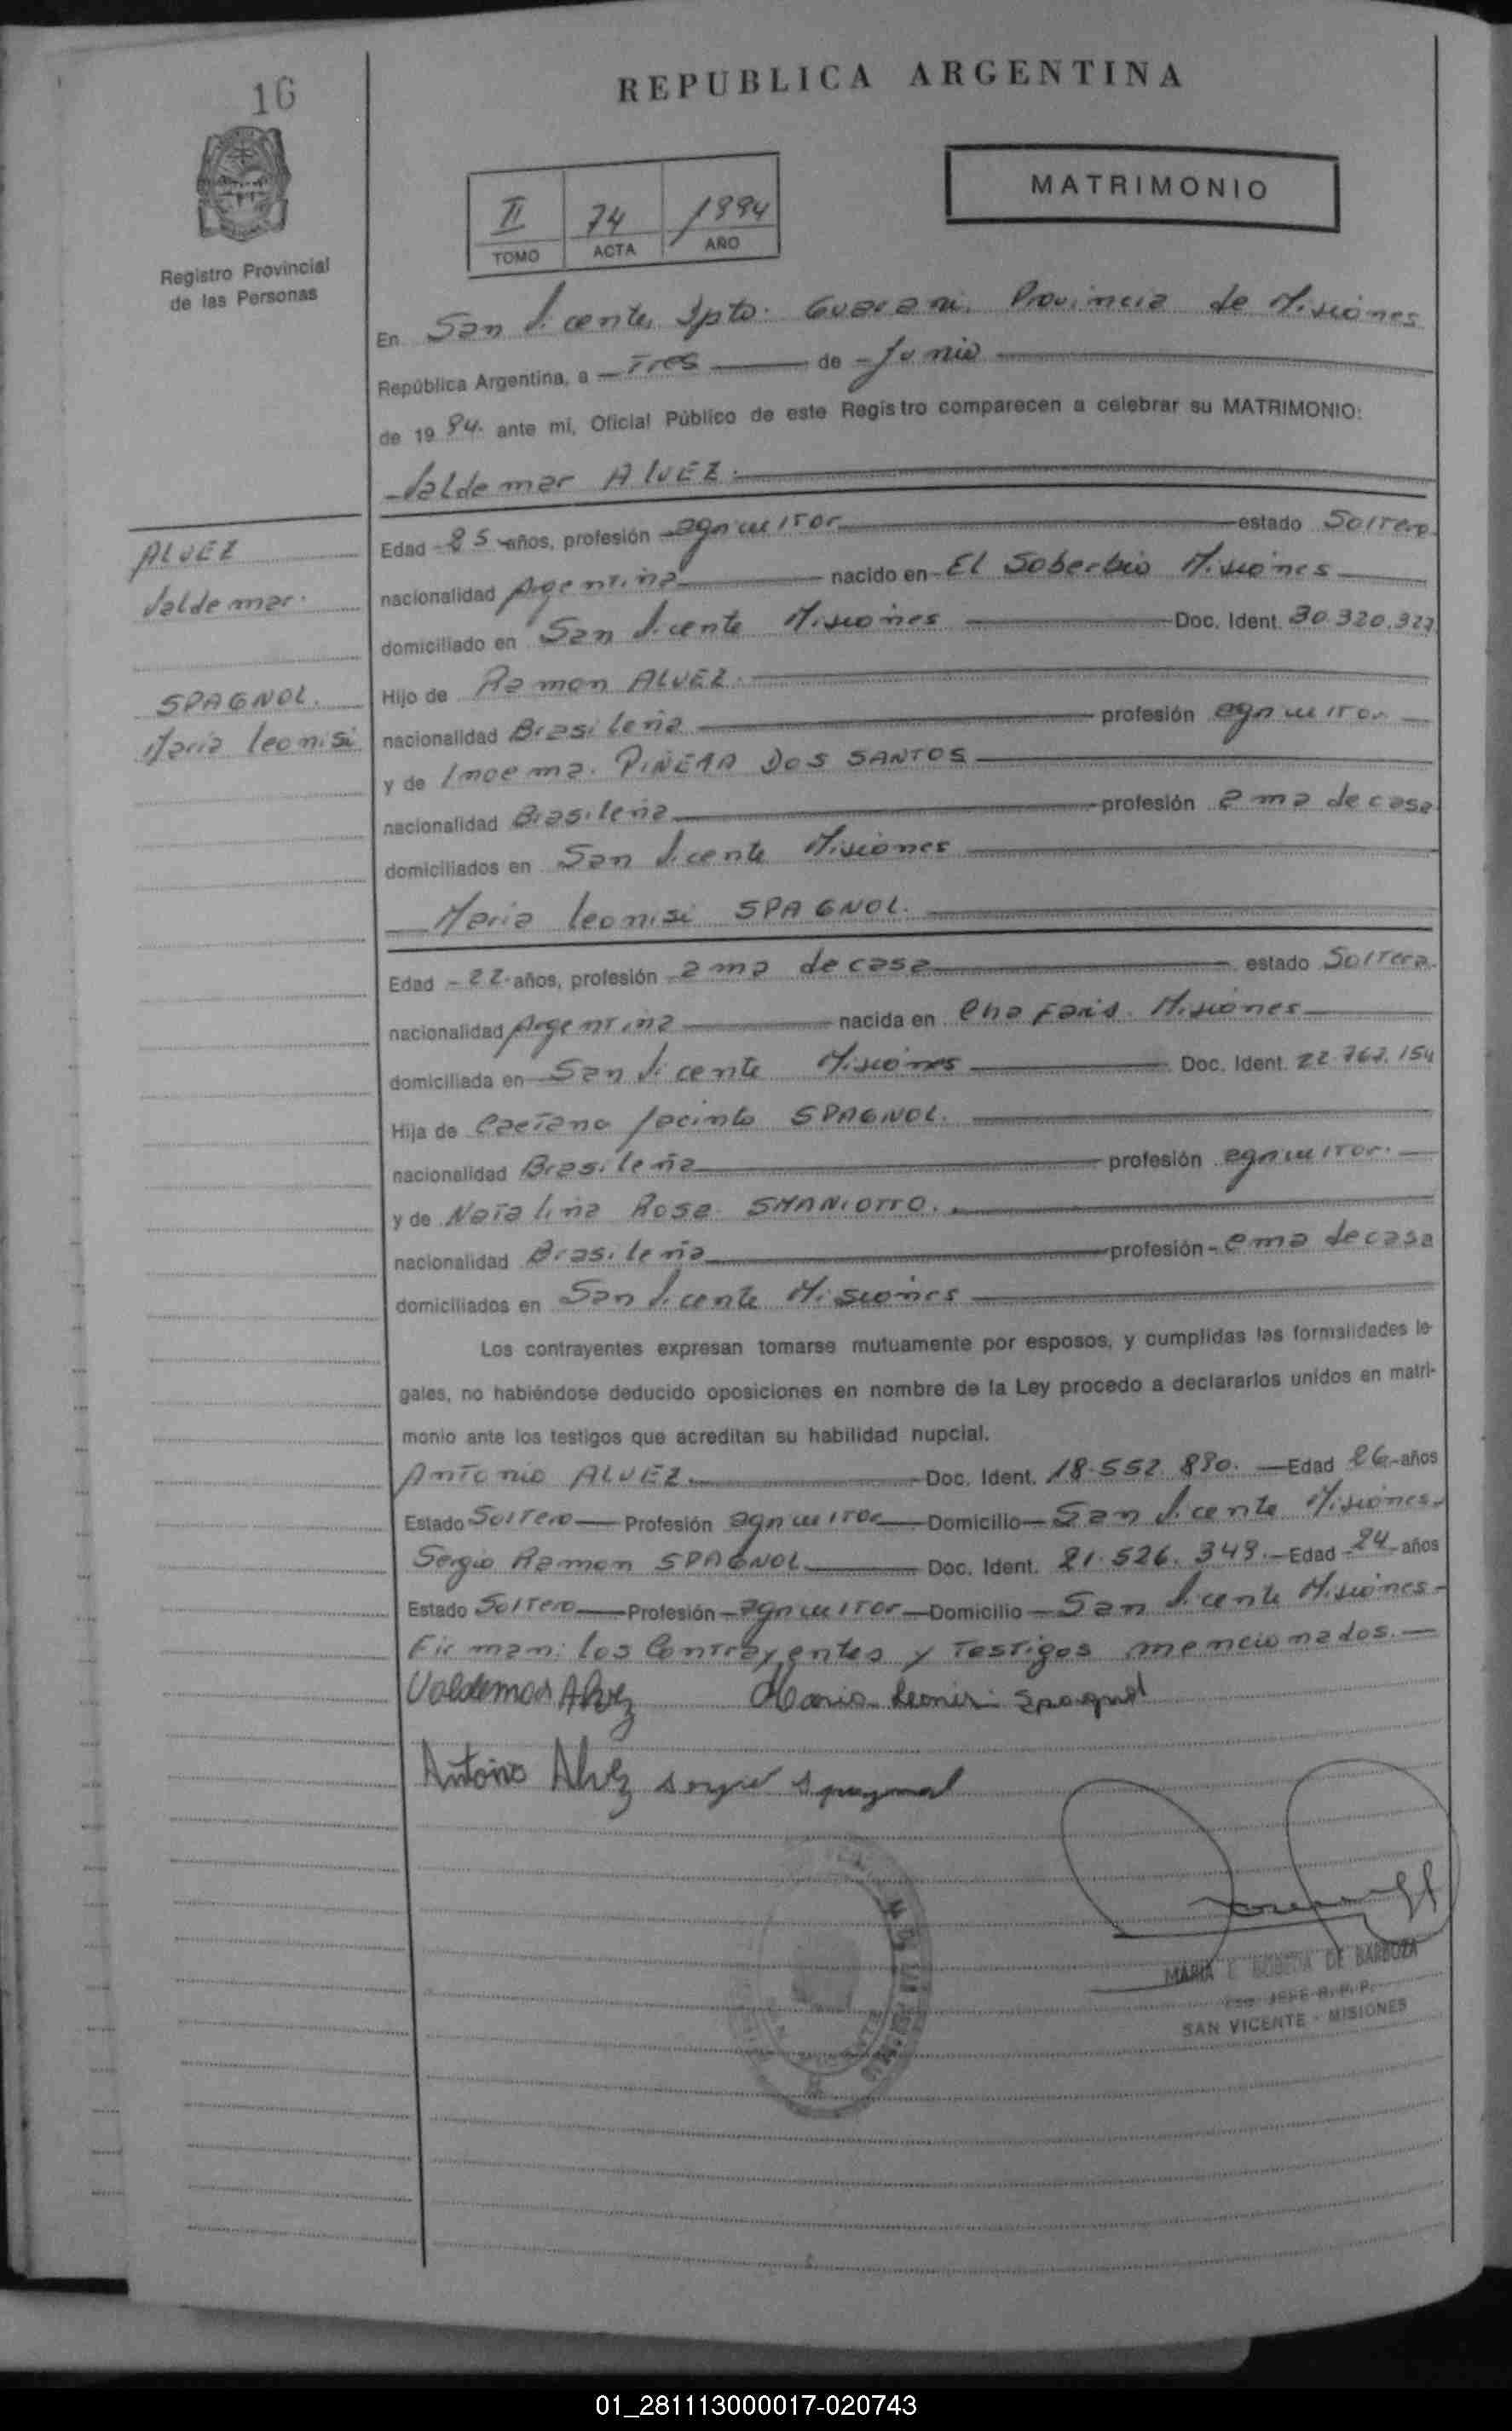 16
REPUBLICA ARGENTINA
MATRIMONIO
II 74 1994
TOMO ACTA AÑO
Registro Provincial
de las Personas
En San Vicente, Dpto. Guarani, Provincia de Misiones
República Argentina, a Tres de Junio
de 1994. ante mi, Oficial Público de este Registro comparecen a celebrar su MATRIMONIO:
Valdemar ALVEZ.
ALVEZ
Valdemar.
SPAGNOL.
Maria Leonisi
Edad 25 años, profesión agricultor estado Soltero
nacionalidad Argentina nacido en El Soberbio Misiones
domiciliado en San Vicente Misiones Doc. Ident. 30.320.327
Hijo de Ramon ALVEZ.
nacionalidad Brasileña profesión agricultor
y de Imoema. PIÑERA DOS SANTOS
nacionalidad Brasileña profesión ama de casa
domiciliados en San Vicente Misiones
Maria Leonisi SPAGNOL.
Edad 22 años, profesión ama de casa estado Soltera.
nacionalidad Argentina nacida en Chafariz. Misiones
domiciliada en San Vicente Misiones Doc. Ident. 22.767.154
Hija de Caetano Jacinto SPAGNOL.
nacionalidad Brasileña profesión agricultor.
y de Natalina Rosa SMANIOTTO.
nacionalidad Brasileña profesión ama de casa
domiciliados en San Vicente Misiones
Los contrayentes expresan tomarse mutuamente por esposos, y cumplidas las formalidades le-
gales, no habiéndose deducido oposiciones en nombre de la Ley procedo a declararlos unidos en matri-
monio ante los testigos que acreditan su habilidad nupcial.
Antonio ALVEZ Doc. Ident. 18.552.880. Edad 26 años
Estado Soltero Profesión agricultor Domicilio San Vicente Misiones.
Sergio Ramon SPAGNOL Doc. Ident. 21.526.349. Edad 24 años
Estado Soltero Profesión agricultor Domicilio San Vicente Misiones
Firman: los Contrayentes y Testigos mencionados.
Valdemar Alvez Maria Leonisi Spagnol
Antonio Alvez Sergio Spagnol
MARIA E. DE BARBOZA
JEFE R.P.P.
SAN VICENTE - MISIONES
01_281113000017-020743